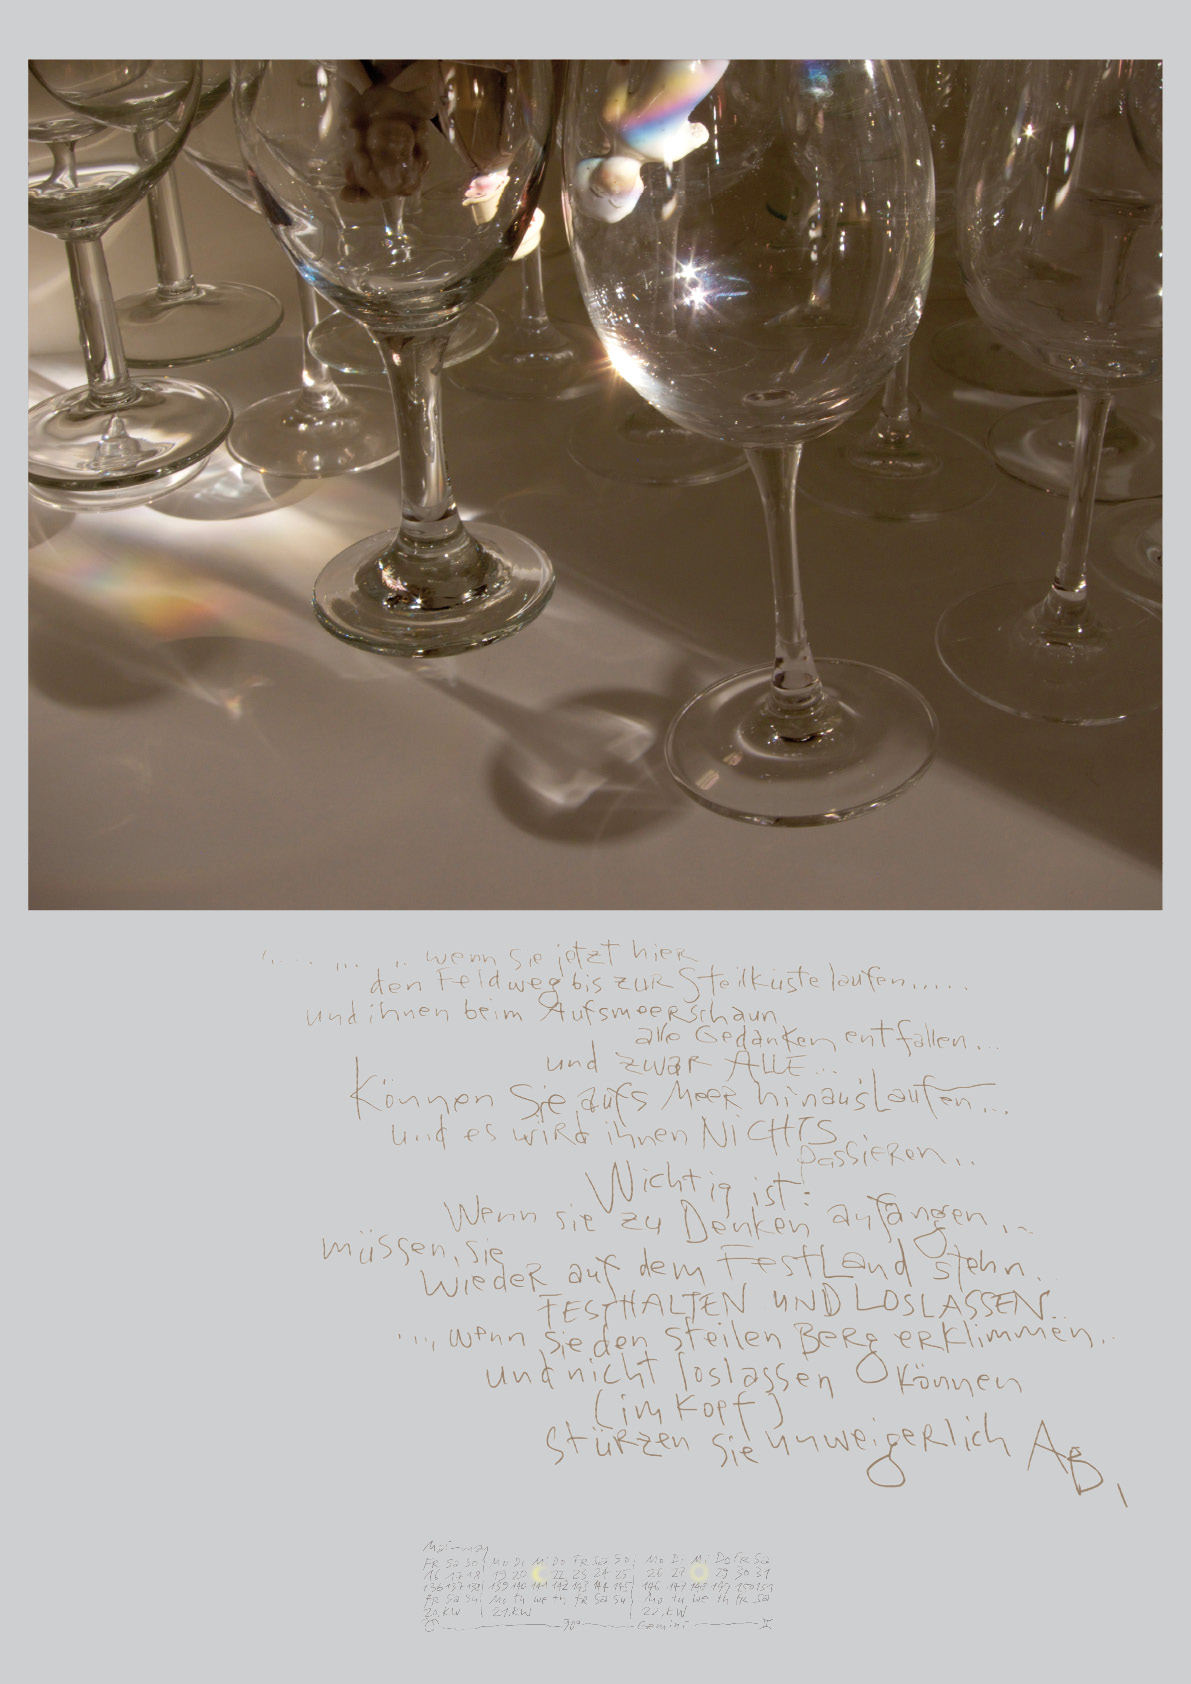 ..... ... .. wenn Sie jetzt hier
den Feldweg bis zur Steilküste laufen.....
und ihnen beim Aufsmeerschaun
alle Gedanken entfallen...
und zwar ALLE...
Können Sie aufs Meer hinauslaufen...
und es wird ihnen NICHTS
passieren..
Wichtig ist:
Wenn sie zu Denken anfangen...
müssen sie
wieder auf dem FestLand stehn.
FESTHALTEN UND LOSLASSEN..
...., wenn sie den steilen Berg erklimmen..
und nicht loslassen können
(im Kopf)
stürzen sie unweigerlich AB,
Mai-may
FR Sa So Mo Di Mi Do FR Sa So Mo Di Mi Do FR Sa
16 17 18 19 20 22 23 24 25 26 27 29 30 31
136 137 138 139 140 141 142 143 144 145 146 147 148 149 150 151
FR Sa Su Mo tu we th FR Sa Su Mo tu we th FR Sa
20.KW 21.KW 22.KW
Gemini